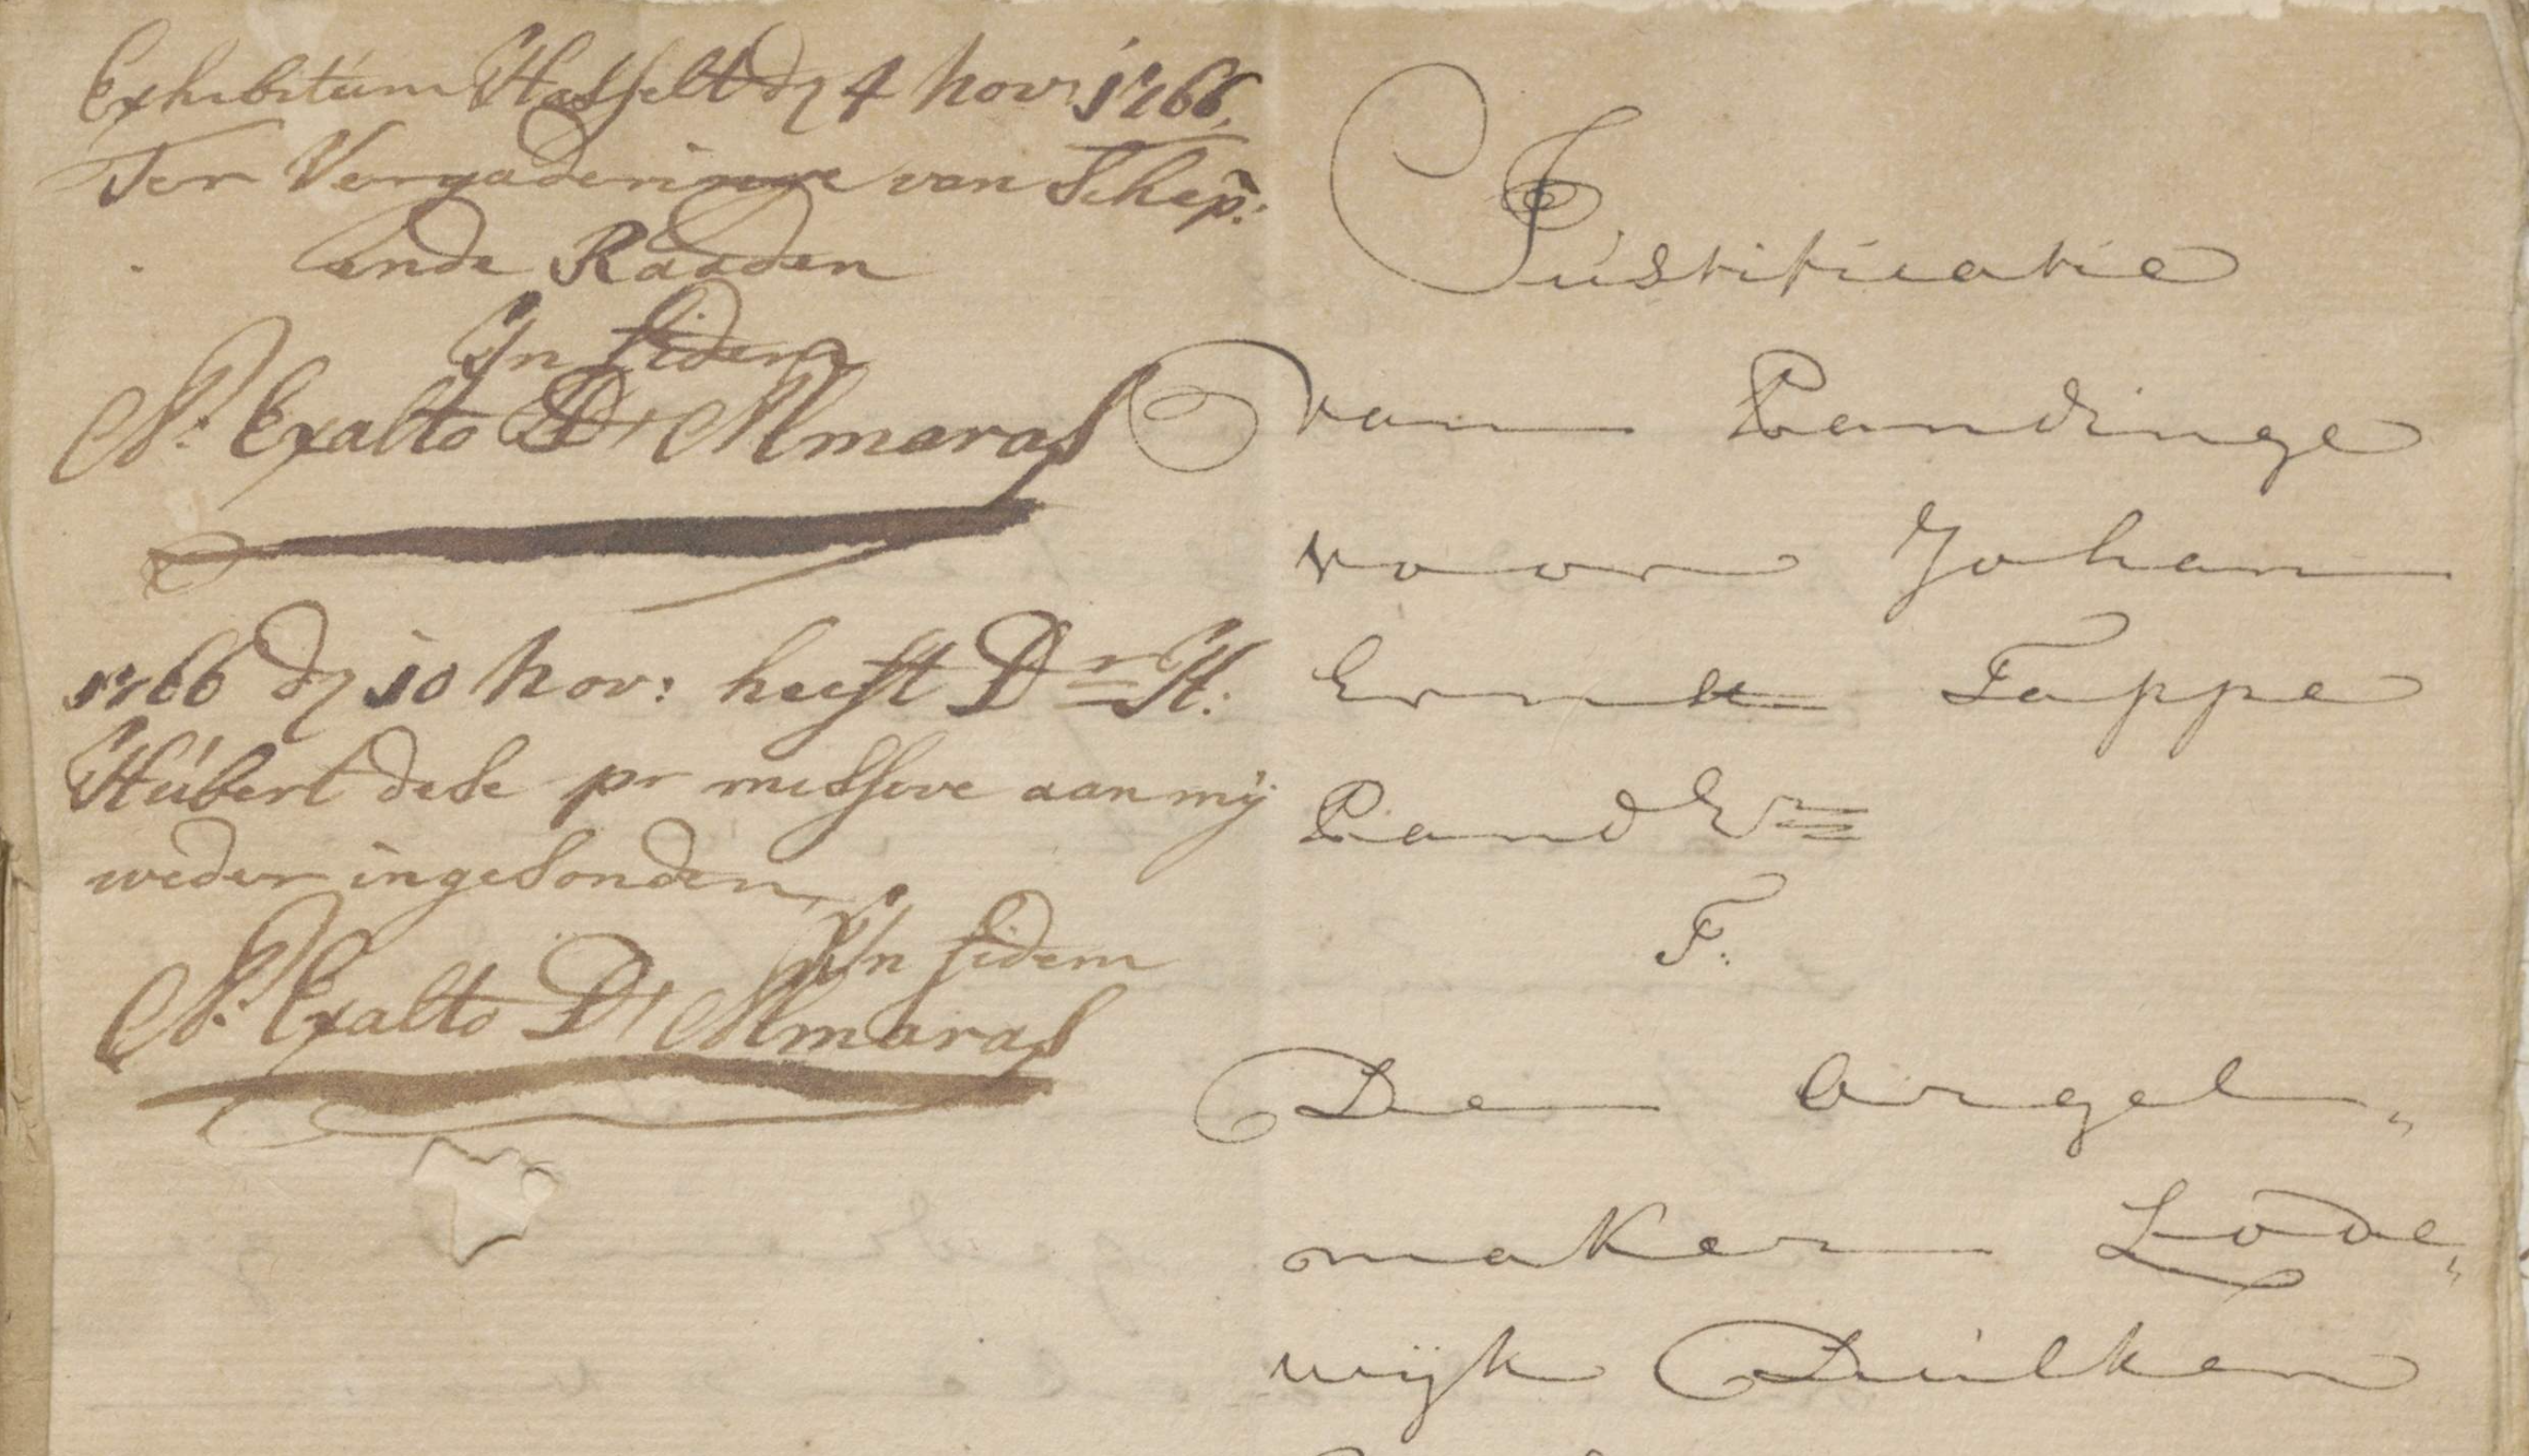 Exhibitum Hasselt dn 4 Nov: 1766.
Ter Vergaderinge van Schep:
ende Raaden
In fidem
N: Exalto D'Almaras
1766 dn 10 Nov: heeft Dr H:
Hubert dese pr missive aan mij
weder ingesonden,
In fidem
N: Exalto D'Almaras
Justificatie
van Pandinge
voor Johan
Ernst Fappe
Pandr
F.
De orgel„
maker Lode„
wijk Duilken